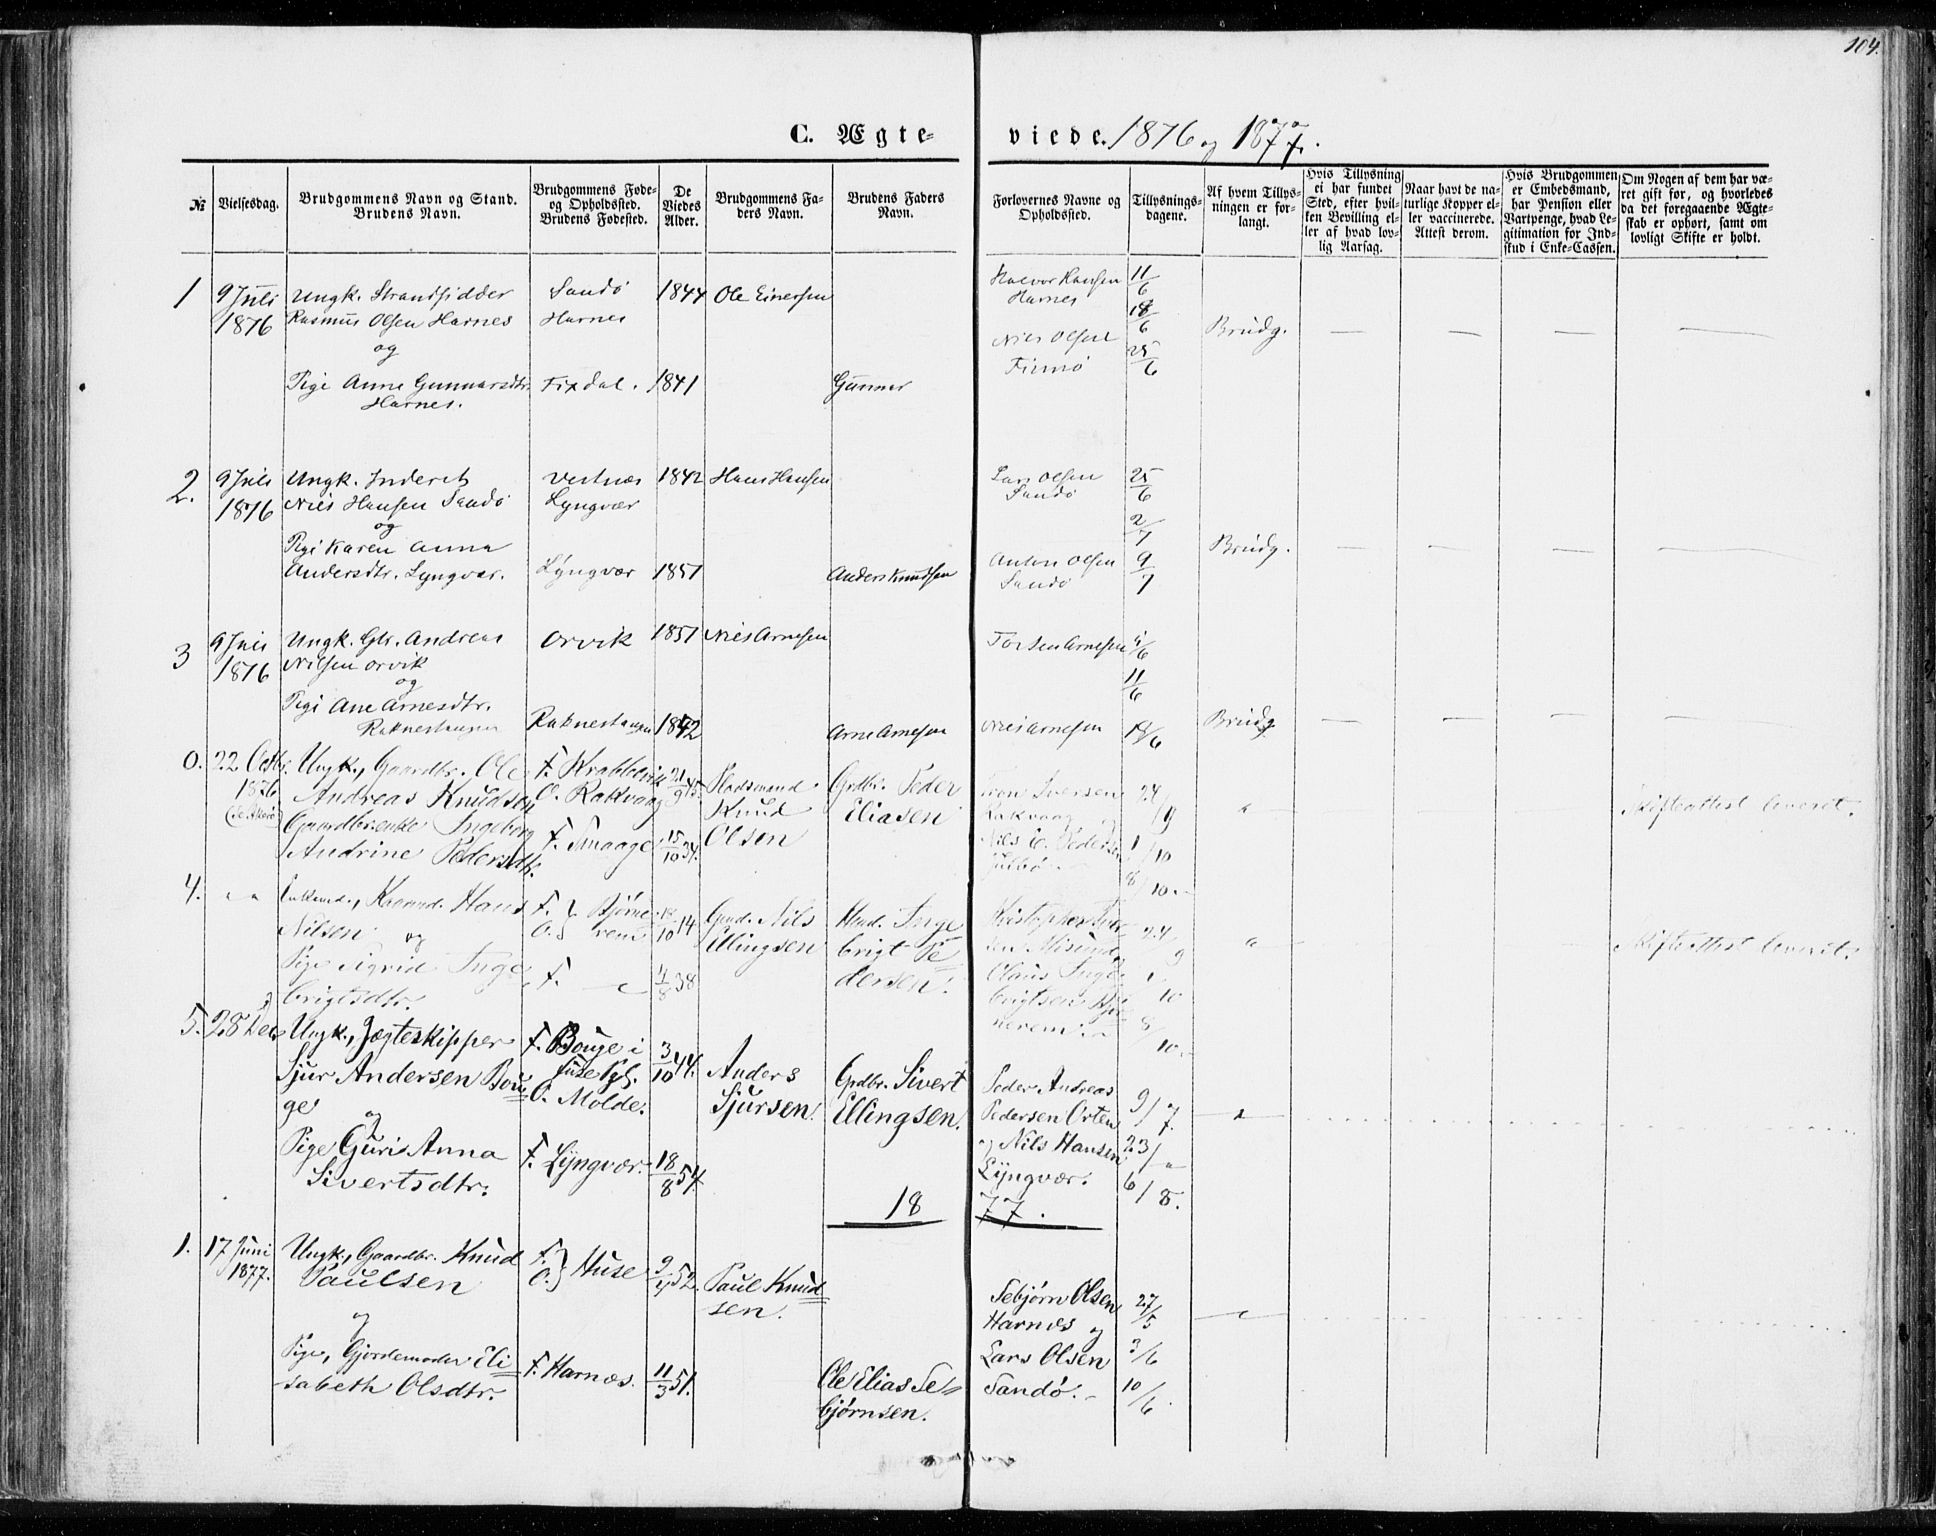 104.
C. Ægteviede. 1876 og 1877.
№
Vielsesdag.
Brudgommens Navn og Stand.
Brudens Navn.
Brudgommens Føde-
og Opholdssted.
Brudens Fødested.
De
Viedes
Alder.
Brudgommens Fa-
ders Navn.
Brudens Faders
Navn.
Forlovernes Navne og
Opholdssted.
Tillysnings-
dagene.
Af hvem Tillys-
ningen er for-
langt.
Hvis Tillysning
ei har fundet
Sted, efter hvil-
ken Bevilling el-
ler af hvad lov-
lig Aarsag.
Naar havt de na-
turlige Kopper el-
ler vaccinerede.
Attest derom.
Hvis Brudgommen
er Embedsmand,
har Pension eller
Vartpenge, hvad Le-
gitimation for Ind-
skud i Enke-Cassen.
Om Nogen af dem har væ-
ret gift før, og hvorledes
da det foregaaende Ægte-
skab er ophørt, samt om
lovligt Skifte er holdt.
1
9 Juli
1876
Ungk. Strandsidder
Rasmus Olsen Harnes
og
Pige Anne Gunnarsdtr.
Harnes.
Sandø
Harnes
Fixdal.
1844
1841
Ole Einersen
Gunner
Halvor Hansen
Harnes
Niels Olsen
Finnø
11/6
18/6
25/6
Brudg.
2.
9 Juli
1876
Ungk. Inderst
Niels Hansen Sandø
og
Pige Karen Anna
Andersdtr. Lyngvær.
Vestnæs
Lyngvær
Lyngvær
1842
1851
Hans Hansen
Anders Knudsen
Lars Olsen
Sandø
Anton Olsen
Sandø
25/6
2/7
9/7
Brudg.
3
9 Juli
1876
Ungk. Gbr. Andreas
Nilsen Orvik
og
Pige Ane Arnesdtr.
Raknestangen
Orvik
Raknestangen
1851
1842
Niels Arnesen
Arne Arnesen
Torsten Arnesen
Niels Arnesen
4/6
11/6
18/6
Brudg.
0.
22 Octbr.
1876
Ungk., Gaardbr. Ole
Andreas Knudsen
Gaardbr.enke Ingeborg
Andrine Pedersdtr.
F. Krabbevik
O. Rakvaag
F. Smaage
21/9 45.
15/10 34.
Pladsmand
Knud
Olsen
Grdbr. Peder
Eliasen
Iversen
Rakvaag
Nils E. Pedersen
Julbø
24/9
1/10
8/10.
"
Skifteattest leveret.
4.
Enkemd., Kaarmd. Hans
Nilsen og
Pige Sigrid Inge
brigtsdtr.
F. } Bjørne
O. } rem
F.
18/10 14
4/8 38
Gmd. Nils
Ellingsen
Hmd. Inge
brigt Pe
dersen.
Kristopher Iver
sen Misund,
Claus Inge
brigtsen Bjør
nerem.
24/9
1/10
8/10.
"
Skifteattest leveret.
5.
28 Dec
Ungk., Jægteskipper
Sjur Andersen Bou
ge
og
Pige Guri Anna
Sivertsdtr.
F. Bouge i
Fuse Pgl.
O. Molde.
F. Lyngvær.
3/10 44.
18/8 54.
Anders
Sjursen.
Grdbr. Sivert
Ellingsen.
Peder Andreas
Pedersen Orten
og Nils Hansen
Lyngvær.
9/7.
23/"
6/8.
1877.
1.
17 Juni
1877.
Ungk., Gaardbr. Knud
Paulsen
og
Pige, Gjordemoder Eli
sabeth Olsdtr.
F. } Huse
O. }
F. Harnæs.
52.
11/3 51.
Paul Knud
sen.
Ole Elias Se-
bjørnsen.
Sebjørn Olsen
Harnæs og
Lars Olsen
Sandø.
27/5
3/6
10/6